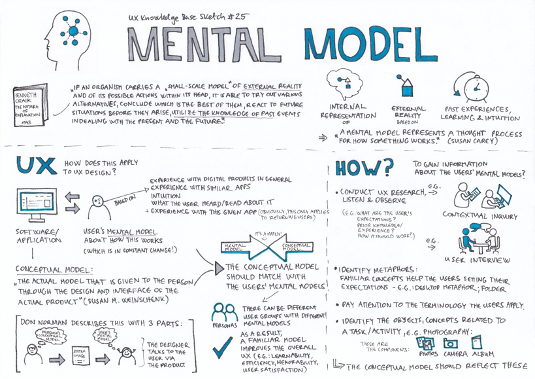 UX Knowledge Base Sketch #25
MENTAL MODEL
KENNETH
CRAIK
THE NATURE
OF
EXPLANATION
1943
"IF AN ORGANISM CARRIES A "SMALL-SCALE MODEL" OF EXTERNAL REALITY
AND OF ITS POSSIBLE ACTIONS WITHIN ITS HEAD, IT IS ABLE TO TRY OUT VARIOUS
ALTERNATIVES, CONCLUDE WHICH IS THE BEST OF THEM, REACT TO FUTURE
SITUATIONS BEFORE THEY ARISE, UTILIZE THE KNOWLEDGE OF PAST EVENTS
IN DEALING WITH THE PRESENT AND THE FUTURE."
INTERNAL
REPRESENTATION
OF
EXTERNAL
REALITY
BASED ON
PAST EXPERIENCES,
LEARNING & INTUITION
"A MENTAL MODEL REPRESENTS A THOUGHT PROCESS
FOR HOW SOMETHING WORKS." (SUSAN CAREY)
UX HOW DOES THIS APPLY
TO UX DESIGN?
SOFTWARE/
APPLICATION
BASED ON
EXPERIENCE WITH DIGITAL PRODUCTS IN GENERAL
EXPERIENCE WITH SIMILAR APPS
INTUITION
WHAT THE USER HEARD/READ ABOUT IT
+ EXPERIENCE WITH THE GIVEN APP (OBVIOUSLY, THIS ONLY APPLIES
TO RETURNING USERS)
USER'S MENTAL MODEL
ABOUT HOW THIS WORKS
(WHICH IS IN CONSTANT CHANGE!)
IT'S A MATCH
MENTAL
MODEL
CONCEPTUAL
MODEL
CONCEPTUAL MODEL:
"THE ACTUAL MODEL THAT IS GIVEN TO THE PERSON
THROUGH THE DESIGN AND INTERFACE OF THE
ACTUAL PRODUCT" (SUSAN M. WEINSCHENK)
THE CONCEPTUAL MODEL
SHOULD MATCH WITH
THE USERS' MENTAL MODELS
PERSONAS
THERE CAN BE DIFFERENT
USER GROUPS WITH DIFFERENT
MENTAL MODELS
AS A RESULT,
A FAMILIAR MODEL
IMPROVES THE OVERALL
UX (E.G.: LEARNABILITY,
EFFICIENCY, MEMORABILITY,
USER SATISFACTION)
DON NORMAN DESCRIBES THIS WITH 3 PARTS:
THE DESIGNER
TALKS TO THE
USER VIA
THE PRODUCT.
HOW? TO GAIN INFORMATION
ABOUT THE USERS' MENTAL MODELS?
• CONDUCT UX RESEARCH,
LISTEN & OBSERVE
E.G.
CONTEXTUAL INQUIRY
(E.G. WHAT ARE THE USER'S
EXPECTATIONS?
PRIOR KNOWLEDGE/
EXPERIENCE?
HOW IT SHOULD WORK?)
E.G.
USER INTERVIEW
• IDENTIFY METAPHORS:
FAMILIAR CONCEPTS HELP THE USERS SETTING THEIR
EXPECTATIONS - E.G.: DESKTOP METAPHOR, FOLDER
• PAY ATTENTION TO THE TERMINOLOGY THE USERS APPLY
• IDENTIFY THE OBJECTS, CONCEPTS RELATED TO
A TASK/ACTIVITY, E.G. PHOTOGRAPHY:
THESE ARE
THE COMPONENTS:
PHOTOS CAMERA ALBUM
THE CONCEPTUAL MODEL SHOULD REFLECT THESE